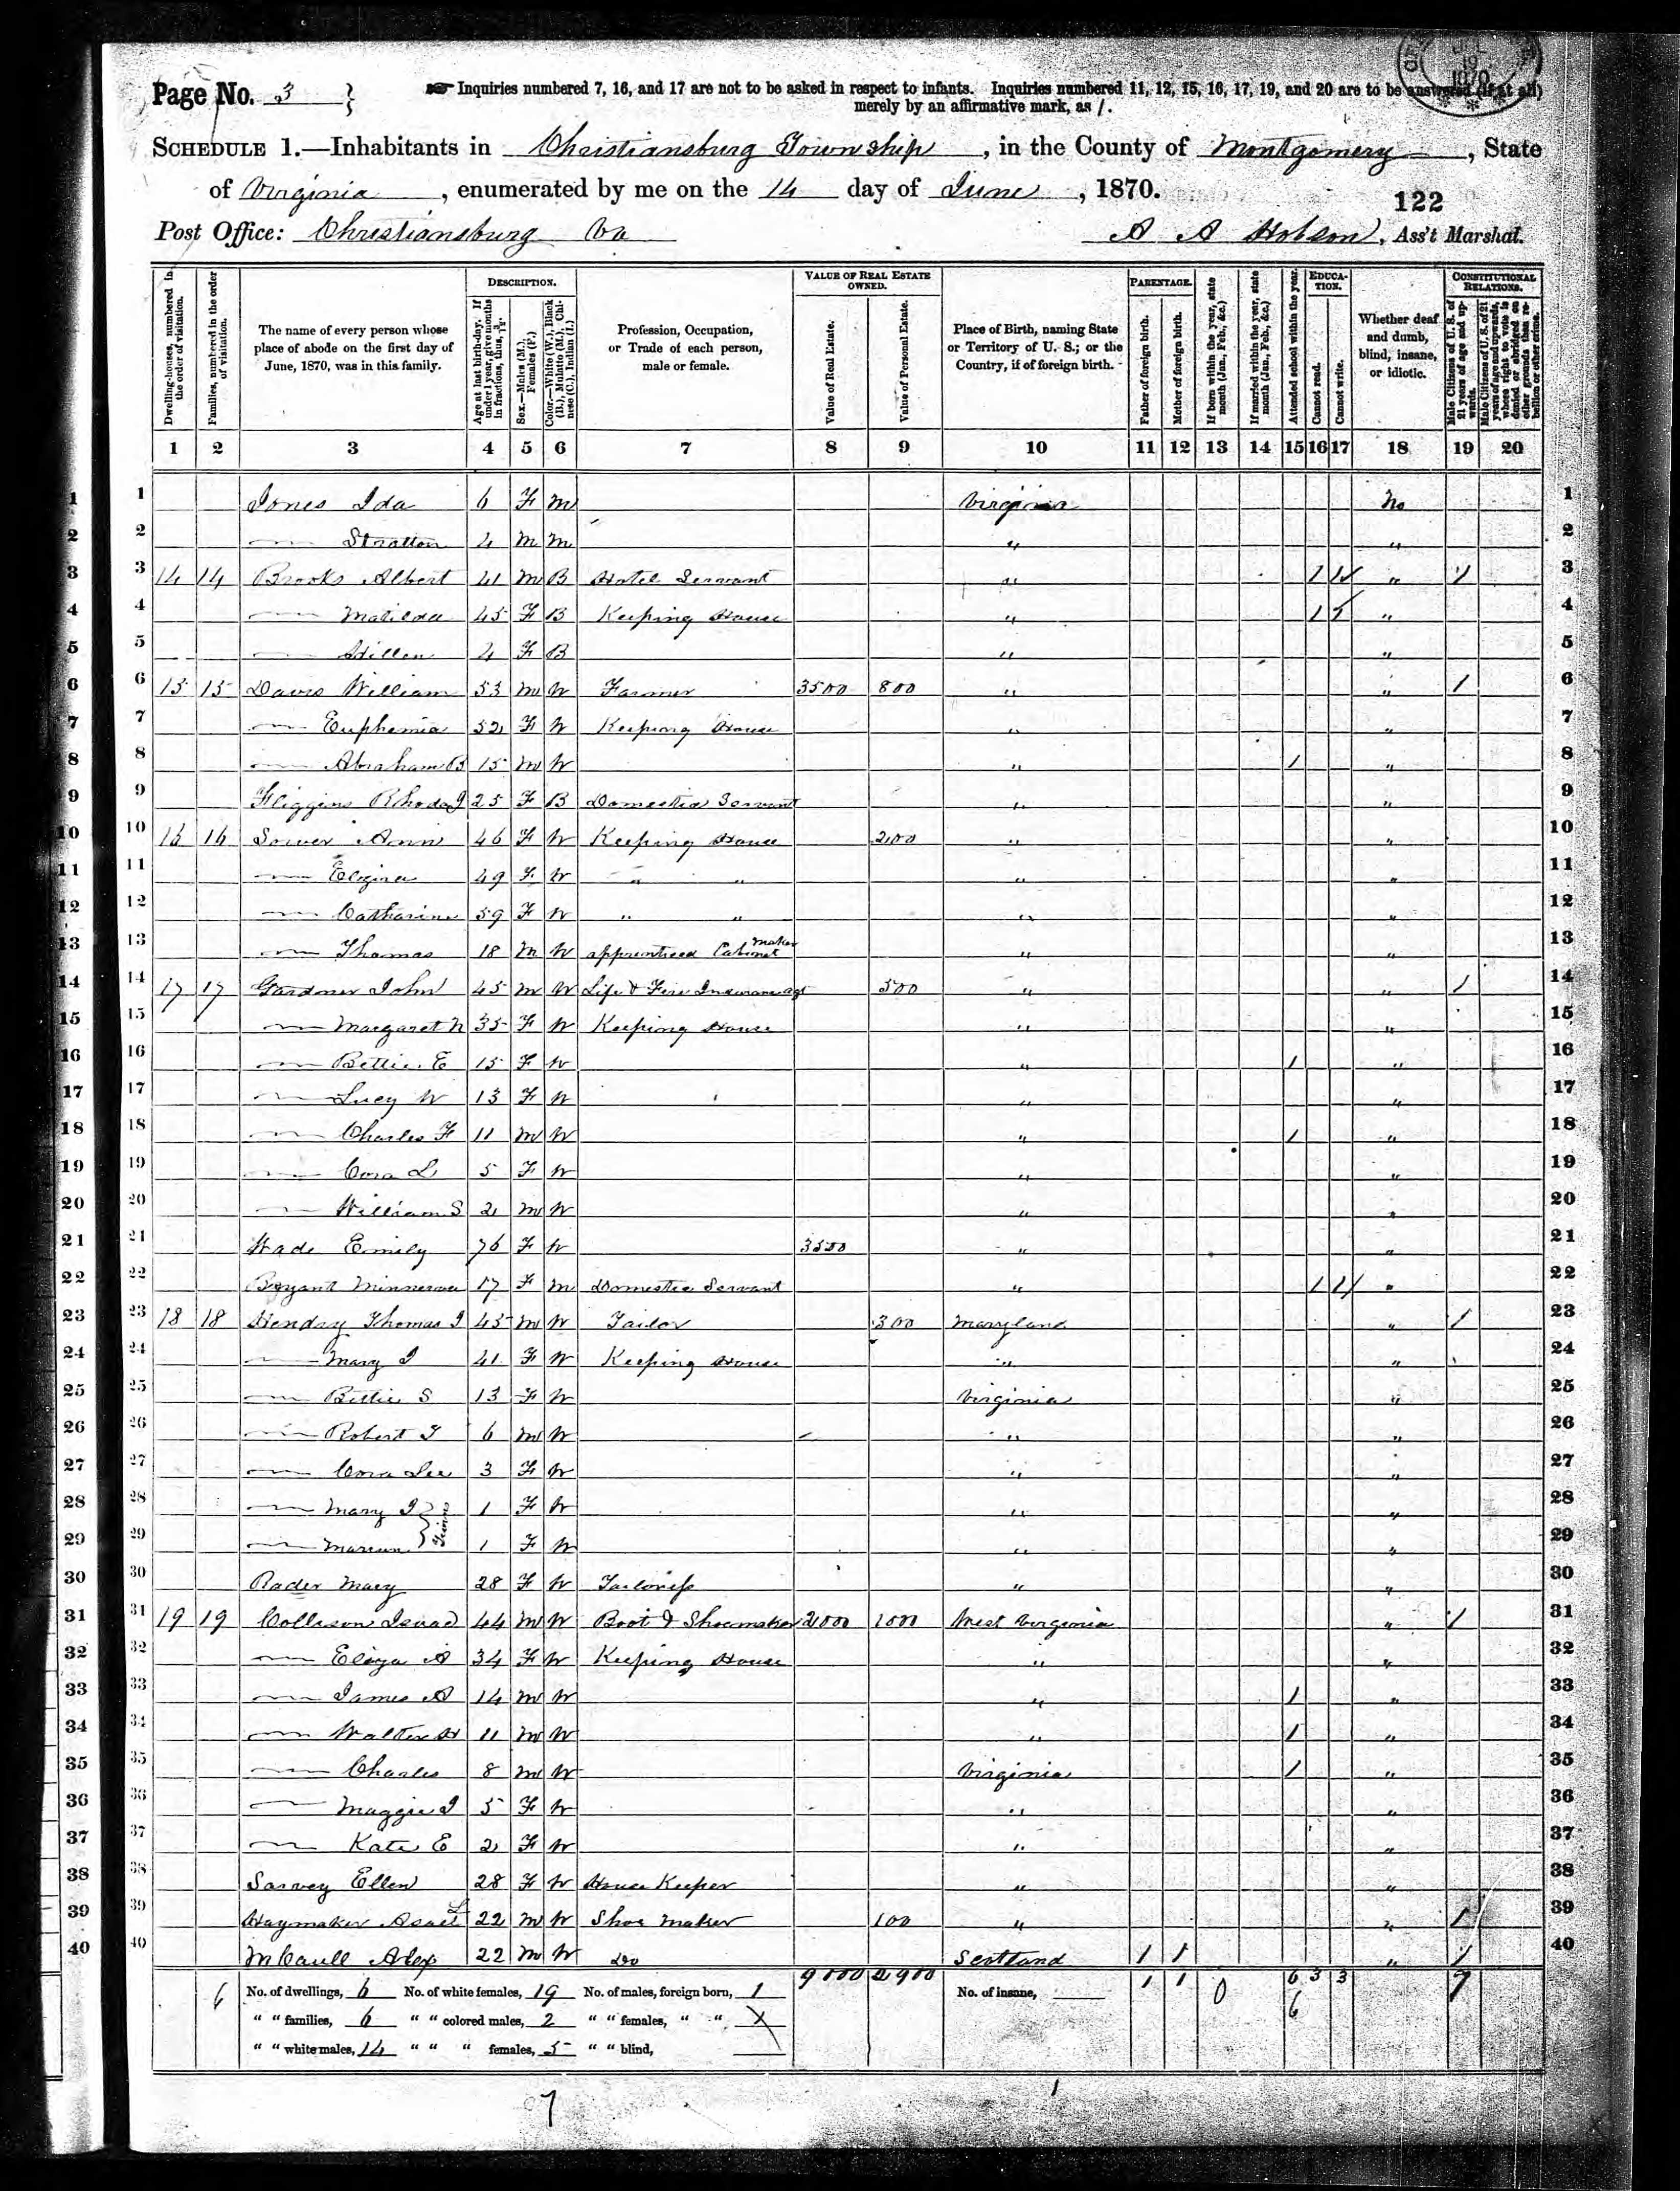 Page No. 3 }
☞ Inquiries numbered 7, 16, and 17 are not to be asked in respect to infants. Inquiries numbered 11, 12, 15, 16, 17, 19, and 20 are to be answered (if at all)
merely by an affirmative mark, as /.
SCHEDULE 1.—Inhabitants in Christiansburg Township, in the County of Montgomery, State
of Virginia, enumerated by me on the 14 day of June, 1870.
122
Post Office: Christiansburg Va
A A Hobson, Ass't Marshal.
Dwelling-houses, numbered in the order of visitation.
Families, numbered in the order of visitation.
The name of every person whose place of abode on the first day of June, 1870, was in this family.
DESCRIPTION.
Age at last birth-day. If under 1 year, give months in fractions, thus, 3/12.
Sex.—Males (M.), Females (F.)
Color.—White (W.), Black (B.), Mulatto (M.), Chinese (C.), Indian (I.)
Profession, Occupation, or Trade of each person, male or female.
VALUE OF REAL ESTATE OWNED.
Value of Real Estate.
Value of Personal Estate.
Place of Birth, naming State or Territory of U. S.; or the Country, if of foreign birth.
PARENTAGE.
Father of foreign birth.
Mother of foreign birth.
If born within the year, state month (Jan., Feb., &c.)
If married within the year, state month (Jan., Feb., &c.)
Attended school within the year.
EDUCATION.
Cannot read.
Cannot write.
Whether deaf and dumb, blind, insane, or idiotic.
CONSTITUTIONAL RELATIONS.
Male Citizens of U. S. of 21 years of age and upwards.
Male Citizens of U. S. of 21 years of age and upwards, where right to vote is denied or abridged on other grounds than rebellion or other crime.
1 2 3 4 5 6 7 8 9 10 11 12 13 14 15 16 17 18 19 20
1 Jones Ida 6 F M Virginia No 1
2 — Stratton 4 M M " " 2
3 14 14 Brooks Albert 41 M B Hotel Servant " 1 1 " 1 3
4 — Matilda 45 F B Keeping House " 1 1 " 4
5 — 4 F B " " 5
6 15 15 Davis William 53 M W Farmer 3500 800 " " 1 6
7 — Euphemia 52 F W Keeping House " " 7
8 — Abraham B 15 M W " 1 " 8
9 Rhoda J 25 F B Domestic Servant " " 9
10 16 16 Sower Ann 46 F W Keeping House 200 " " 10
11 — 49 F W " " " " 11
12 — Catharine 59 F W " " " " 12
13 — Thomas 18 M W apprenticed Cabinet maker " " 13
14 17 17 Gardner John 45 M W Life & Fire Insurance agt 500 " " 1 14
15 — Margaret N 35 F W Keeping House " " 15
16 — Bettie E 15 F W " 1 " 16
17 — Lucy W 13 F W " " 17
18 — Charles F 11 M W " 1 " 18
19 — Cora L 5 F W " " 19
20 — William S 2 M W " " 20
21 Wade Emily 76 F W 3500 " " 21
22 Bryant Minnerva 17 F M Domestic Servant " 1 1 " 22
23 18 18 Hendry Thomas J 45 M W Tailor 300 Maryland " 1 23
24 — Mary J 41 F W Keeping House " " 24
25 — Bettie S 13 F W Virginia " 25
26 — Robert T 6 M W " " 26
27 — Cora Lee 3 F W " " 27
28 — Mary J } Twins 1 F W " " 28
29 — } 1 F W " " 29
30 Rader Mary 28 F W Tailoress " " 30
31 19 19 Collison Isaac 44 M W Boot & Shoemaker 2000 1000 West Virginia " 1 31
32 — Eliza A 34 F W Keeping House " " 32
33 — James A 14 M W " 1 " 33
34 — Walter H 11 M W " 1 " 34
35 — Charles 8 M W Virginia 1 " 35
36 — Maggie J 5 F W " " 36
37 — Kate E 2 F W " " 37
38 Ellen 28 F W House Keeper " " 38
39 Haymaker Asael L 22 M W Shoe maker 100 " " 1 39
40 McCaull Alex 22 M W Do Scotland 1 1 " 1 40
6 No. of dwellings, 6 No. of white females, 19 No. of males, foreign born, 1 9000 2900 No. of insane, 1 1 0 6 3 3 7
" " families, 6 " " colored males, 2 " " females, " " X 6
" " white males, 14 " " " females, 5 " " blind,
7